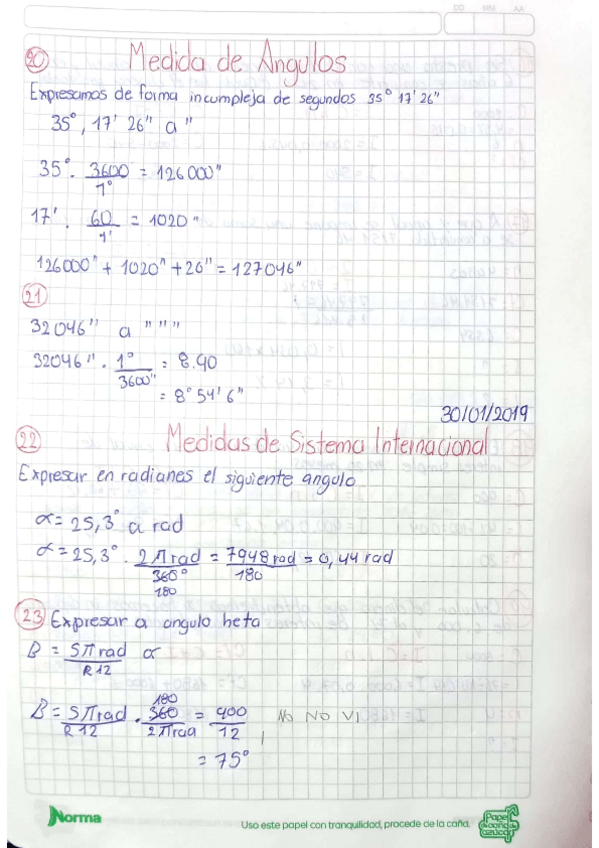 AA MM DD
20 Medida de Angulos
Expresamos de forma incumpleja de segundos 35° 17' 26"
35°, 17' 26" a "
35° . 3600 / 1° = 126000"
17' . 60 / 1' = 1020"
126000" + 1020" + 26" = 127046"
21
32046" a " " "
32046" . 1° / 3600" = 8.90
= 8° 54' 6"
30/01/2019
22 Medidas de Sistema Internacional
Expresar en radianes el siguiente angulo
α = 25,3° a rad
α = 25,3° . 2π rad / 360° = 7948 rad / 180 = 0,44 rad
180
23 Expresar a angulo beta
B = 5π rad / R12 α
B = 5π rad / R12 . 360 / 2π rad = 900 / 12 No NO VI
180
= 75°
Norma
Uso este papel con tranquilidad, procede de la caña.
Papel de caña de azúcar